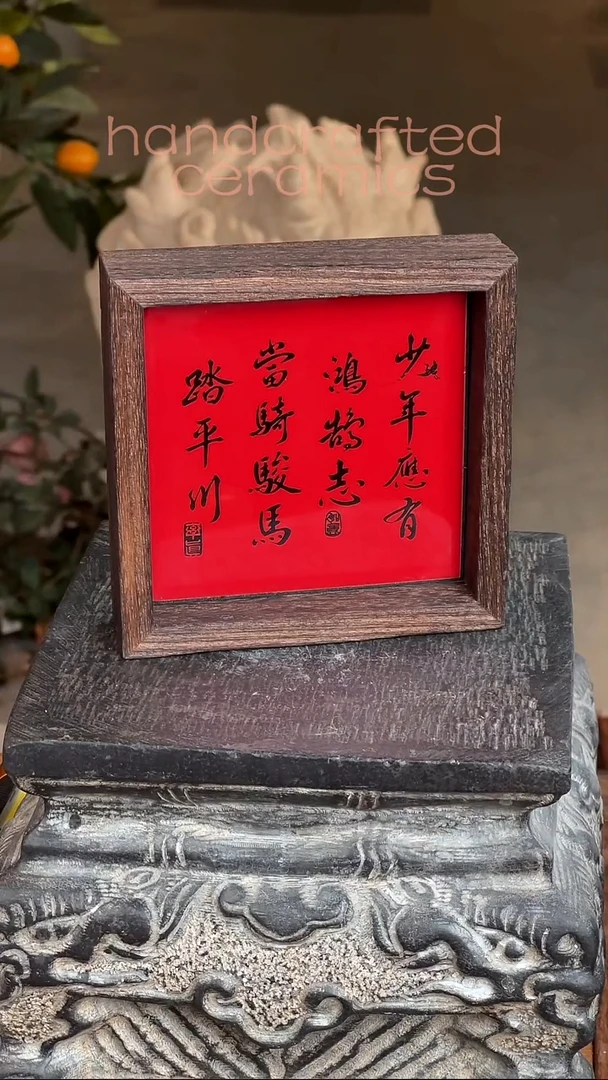 handcrafted
ceramics
少年應有
鴻鵠志
當騎駿馬
踏平川